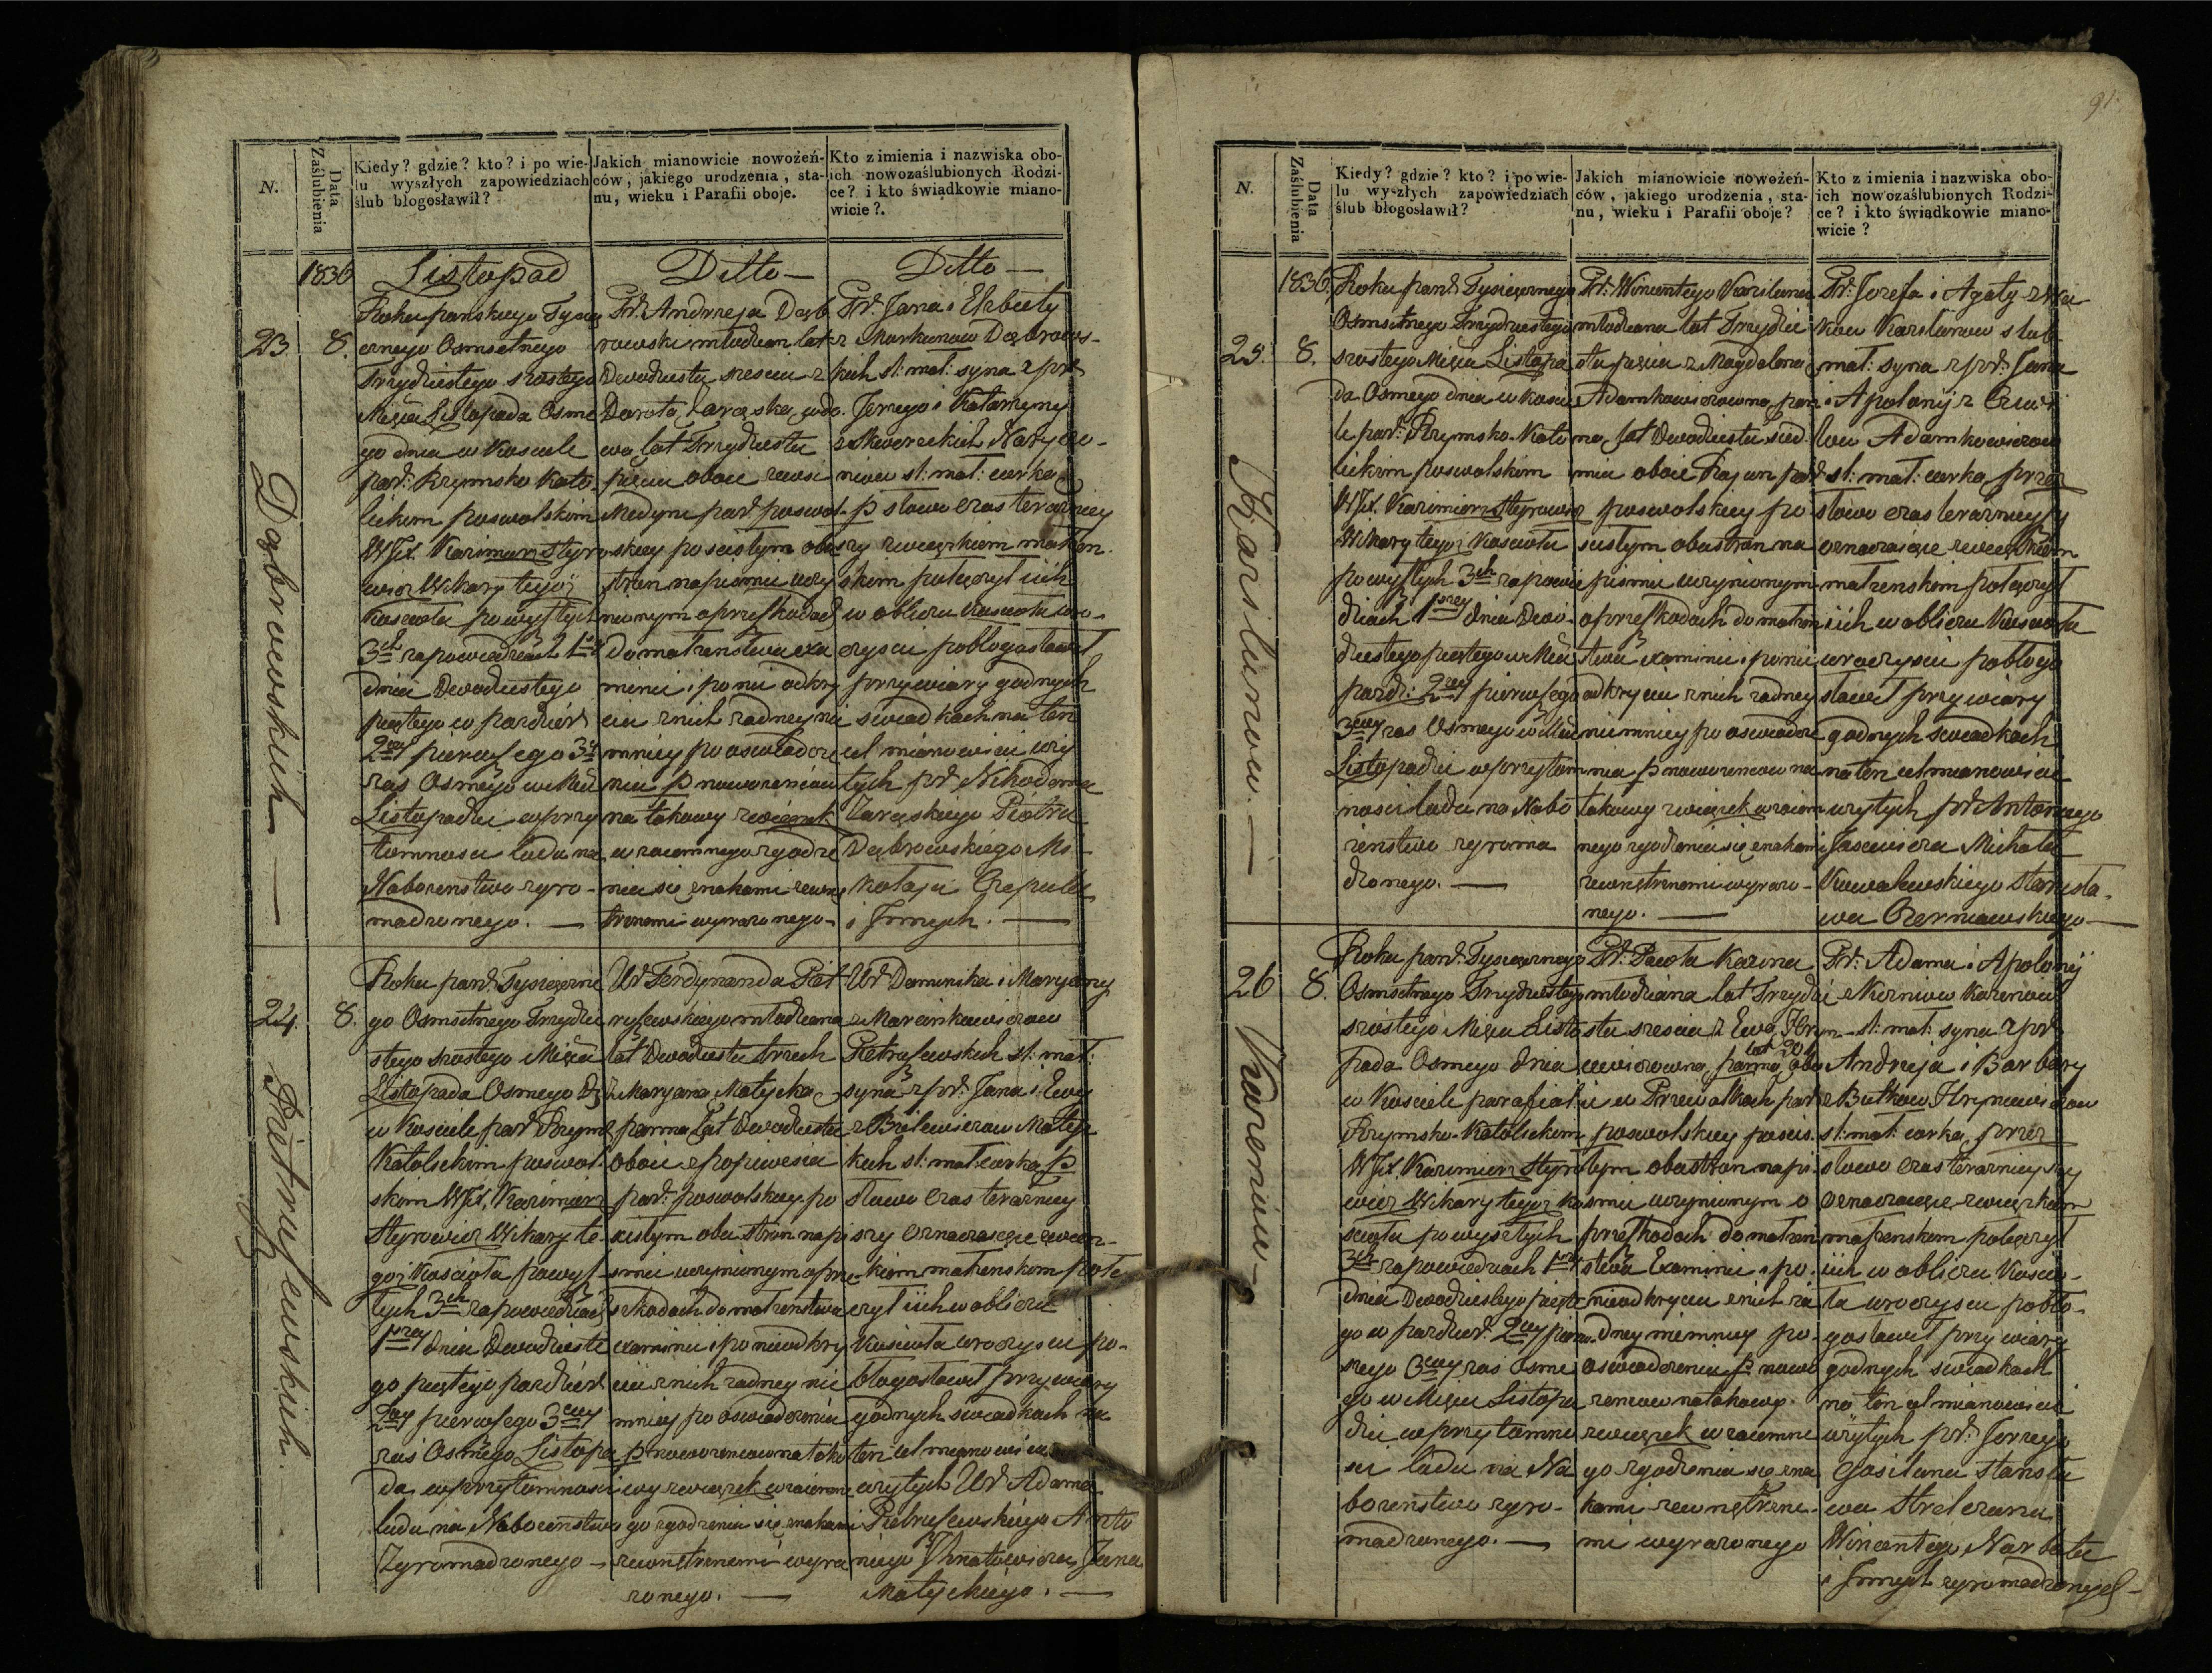 N.
Data Zaślubienia
Kiedy? gdzie? kto? i po wie-
lu wyszłych zapowiedziach
ślub błogosławił?
Jakich mianowicie nowożeń-
ców, jakiego urodzenia, sta-
nu, wieku i Parafii oboje.
Kto z imienia i nazwiska obo-
ich nowozaślubionych Rodzi-
ce? i kto świądkowie miano-
wicie?.
1836
Listopad
Ditto —
Ditto —
23.
8.
Dąbrowskich —
Roku pańskiego Tysią
cznego Osmsetnego
Trzydziestego szostego
Mięca Listopada Osme
go dnia w Kosciele
par: Rzymsko Kato-
lickim poswolskim
WJX. Kazimierz Styro
wicz Wikary tegoż
Koscioła powyszłych
3ch zapowiedziach
dnia Dwodziestego
piątego w pazdzier
2ey pierwszego 3ey
zas Osmego
Listopadzie w przy
tomnosci ludu na
Nabozenstwo zgro-
madzonego. —
Pr: Andrzeja Dąb
rowski młodzian lat
Dwodziestu szesciu z
Dorotą Zarąską wdo
wą lat Trzydziestu
pięciu oboie
par: poswol-
skiey po scisłym obu
stron na pismie uczy
nionym o przeszkodach
do małzenstwa exa
minie i po nie odkry
ciu z nich zadney nie
mniey po oswiadcze
niu nowozencow
na takowy związek
wzaiemnego zgodze
nia się znakami zewnę
trznemi wyrazonego-
Pr: Jana i Elzbiety
z Markunow Dąbrows-
kich sl: mał: syna z pr:
Jerzego i Katarzyny
sl: mał: corką
słowo czas teraznie
szy związkiem małzen
skim połączył ich
w obliczu Koscioła uro-
czyscie pobłogosławił
przy wiary godnych
swiadkach na ten
cel mianowicie uży
tych pr: Nikodema
Zarąskiego Piotra
Dąbrowskiego Mi
kołaja Czepula
i Jnnych. —
24.
8.
Pietruszewskich.
Roku pań: Tysiączne
go Osmsetnego Trzydzie
stego szostego Mięca
Listopada Osmego D
w Kosciele par: Rzym
Katolickim poswol-
skim WJX. Kazimierz
Styrowicz Wikary te-
goż Koscioła powysz-
łych 3ch zapowiedziach
1szey dnia Dwodzieste
go piątego pazdzier
2ey pierwszego 3ey
zas Osmego Listopa
da w przytomnosci
ludu na Nabozenstwo
Zgromadzonego —
Ur: Ferdynanda Piet
ruszewskiego młodziana
lat Dwodziestu trzech
z Maryaną Małycką
panną lat Dwodziestu
oboie z popiwesia
par: poswolskiey po
scisłym obu stron napi
smie uczynionym o prze-
szkodach do małzenstwa
examinie i po nieodkry
ciu z nich zadney nie
mniey po oswiadczeniu
nowozencow na tako
wy związek wzaiemne
go zgodzenia się znakami
zewnętrznemi wyra
zonego. —
Ur: Dominika i Maryanny
z Marcinkiewiczow
Pietruszewskich sl: mał:
syna z pr: Jana i Ewy
z Bielewiczow Małyc
kich sl: mał: corką p
słowo czas terazniey
szy oznaczaiące związ-
kiem małzenskim połą
czył ich w obliczu
Koscioła uroczyscie po-
błogosławił przy wiary
godnych swiadkach na
ten cel mianowicie
użytych Ur: Adama
Pietruszewskiego Anto
niego Jhnatowicza Jana
Małyckiego. —
91.
N.
Data Zaślubienia
Kiedy? gdzie? kto? i po wie-
lu wyszłych zapowiedziach
ślub błogosławił?
Jakich mianowicie nowożeń-
ców, jakiego urodzenia, sta-
nu, wieku i Parafii oboje?
Kto z imienia i nazwiska obo-
ich nowozaślubionych Rodzi-
ce? i kto świądkowie miano-
wicie?
1836.
25.
8.
Karilunow. —
Roku pań: Tysiącznego
Osmsetnego Trzydziestego
szostego Mięca Listopa
da Osmego dnia w Kosci
le par: Rzymsko-Kato
lickim poswolskim
WJX. Kazimierz Styrowicz
Wikary tegoż Koscioła
powyszłych 3ch zapowie
dziach 1szey dnia Dwo-
dziestego piątego
pazdz: 2ey pierwszego
3ey zas Osmego
Listopadzie w przytom
nosci ludu na Nabo
zenstwo zgroma
dzonego. —
Pr: Wincentego Kariluna
młodziana lat Trzydzie
stu pięciu z Magdaleną
Adamkowiczowną pan
ną lat Dwodziestu sied
miu oboie par:
poswolskiey po
scisłym obustron na
pismie uczynionym
o przeszkodach do małzen
stwa examinie i po nie
odkryciu z nich zadney
niemniey po oswiadcze
nia nowozencow na
takowy związek wzaiem
nego zgodzenia się znakami
zewnętrznemi wyrazo-
nego. —
Pr: Jozefa i Agaty
Karilunow slub
mał: syna z pr: Jana
i Apolonij
Adamkowiczow
sl: mał: corką przez
słowo czas terazniejszy
oznaczaiące związkiem
małzenskim połączył
ich w obliczu Koscioła
uroczyscie pobłogo
sławił przy wiary
godnych swiadkach
na ten cel mianowicie
użytych pr: Antoniego
Michała
Kowalewskiego Stanisła-
wa Czerniawskiego —
26
8.
Kozeniow —
Roku pań: Tysiącznego
Osmsetnego Trzydziestego
szostego Mięca Listo
pada Osmego dnia
w Kosciele parafial
Rzymsko-Katolickim
WJX. Kazimierz Styro
wicz Wikary tegoż Ko
scioła powyszłych
3ch zapowiedziach 1szey
dnia Dwodziestego piąte
go w pazdzier: 2ey pierw
szego 3ey zas Osme
go w Mięcu Listopa
dzie w przytomno
sci ludu na Na
bozenstwo zgro-
madzonego. —
Pr: Pawła Kozina
młodziana lat Trzydzie
stu szesciu z Ewą Hryn
iewiczowną panną lat 20 obo
ie w Przewałkach par:
poswolskiey po scis-
łym obustron napi-
smie uczynionym o
przeszkodach do małzen
stwa Examinie i po-
nieodkryciu z nich za
dney niemniey po-
oswiadczeniu nowo
zencow na takowy
związek wzaiemne
go zgodzenia się zna
kami zewnętrzne-
mi wyrazonego
Pr: Adama i Apolonij
sl: mał: syna z pr:
Andrzeja i Barbary
z Butkow Hryniewiczow
sl: mał: corką przez
słowo czas terazniey szy
oznaczaiące związkiem
małzenskim połączył
ich w obliczu Koscio-
ła uroczyscie pobło-
gosławił przy wiary
godnych swiadkach
na ten cel mianowicie
użytych pr: Jerzego
Stanisła
wa Strelczana
Wincentego Narbuta
i Jnnych zgromadzonych —